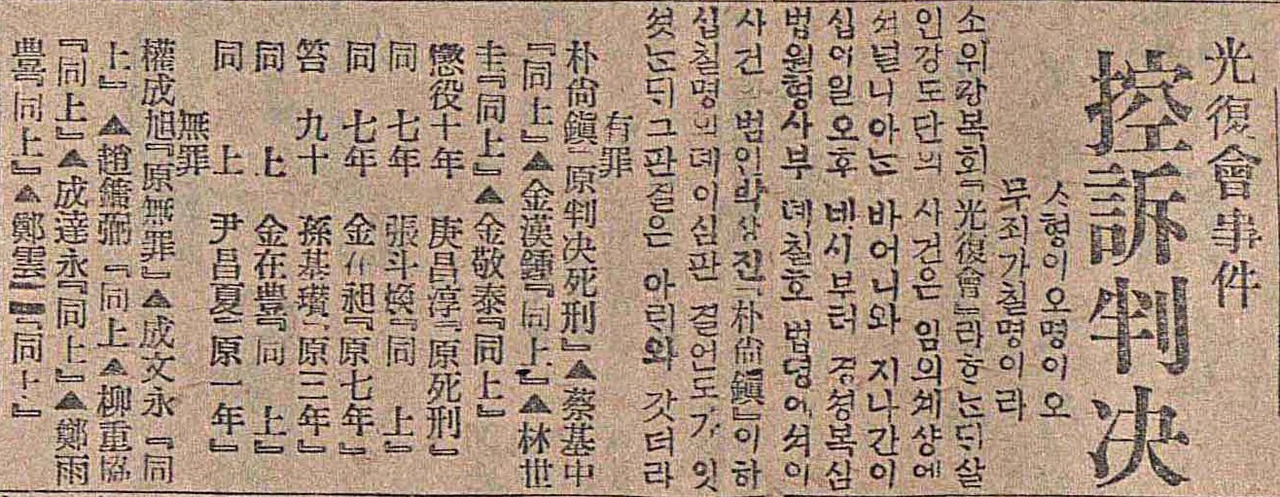 光復會事件
控訴判决
ᄉ형이오명이오
무죄가칠명이라
소위광복회『光復會』라ᄒᆞᄂᆞᆫᄃᆡ살
인강도단의 사건은 임의셰샹에
셔널니아ᄂᆞᆫ 바어니와 지나간이
십이일오후 네시부터 경셩복심
법원형사부 뎨칠호 법뎡에셔이
사건 범인박상진『朴尙鎭』이하
십칠명의뎨이심판 결언도가 잇
셧ᄂᆞᆫᄃᆡ그판결은 아ᄅᆡ와 갓더라
有罪
朴尙鎭『原判决死刑』▲蔡基中
『同上』▲金漢鍾『同上』▲林世
圭『同上』▲金敬泰『同上』
懲役十年 庚昌淳『原死刑』
同 七年 張斗煥『同 上』
同 七年 金在昶『原七年』
笞 九十 孫基瓚『原三年』
同 上 金在豊『同 上』
同 上 尹昌夏『原一年』
無罪
權成旭『原無罪』▲成文永『同
上』▲趙鏞弼『同上』▲柳重協
『同上』▲成達永『同上』▲鄭雨
豊『同上』▲鄭雲『同上』